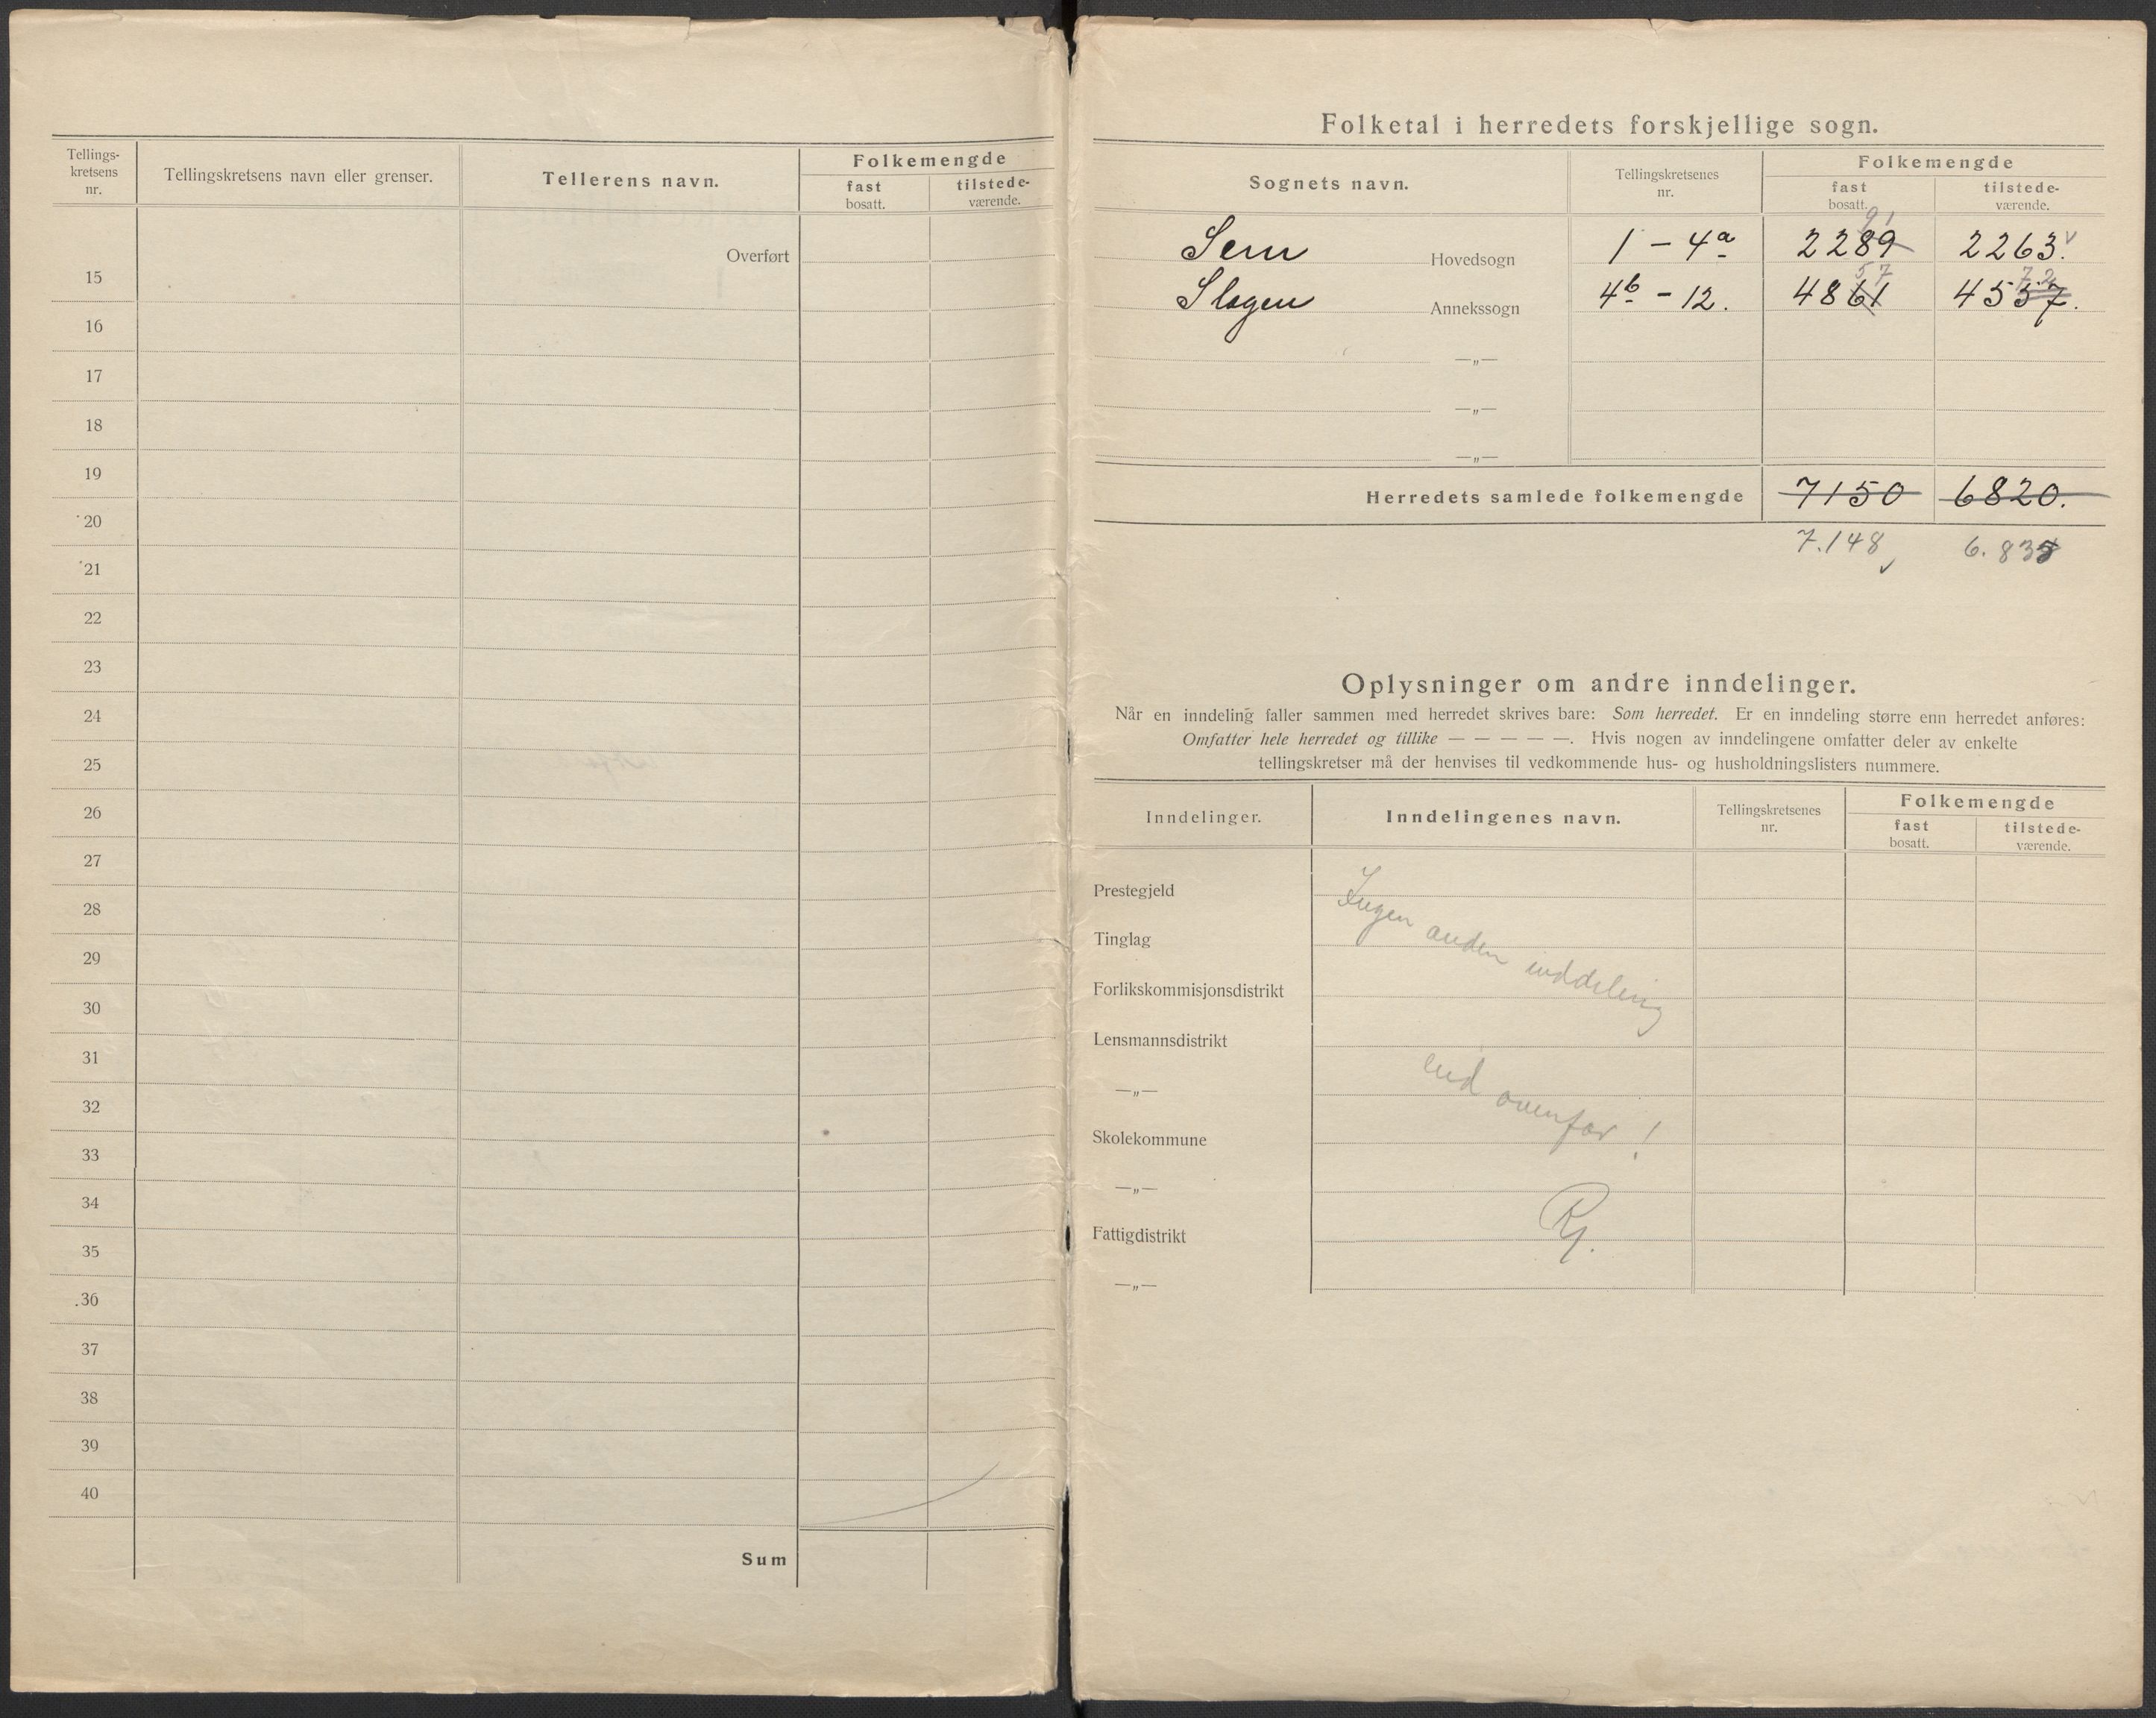 Tellings-
kretsens
nr.
Tellingskretsens navn eller grenser.
Tellerens navn.
Folkemengde
fast
bosatt.
tilstede-
værende.
Overført
15
16
17
18
19
20
21
22
23
24
25
26
27
28
29
30
31
32
33
34
35
36
37
38
39
40
Sum
Folketal i herredets forskjellige sogn.
Sognets navn.
Tellingskretsenes
nr.
Folkemengde
fast
bosatt.
tilstede-
værende.
91
Sem Hovedsogn 1 – 4a 2289 2263.
57 72
Slagen Annekssogn 4b – 12. 4861 4557.
—„—
—„—
—„—
Herredets samlede folkemengde 7150 6820.
7.148 6.835
Oplysninger om andre inndelinger.
Når en inndeling faller sammen med herredet skrives bare: Som herredet. Er en inndeling større enn herredet anføres:
Omfatter hele herredet og tillike — — — — —. Hvis nogen av inndelingene omfatter deler av enkelte
tellingskretser må der henvises til vedkommende hus- og husholdningslisters nummere.
Inndelinger.
Inndelingenes navn.
Tellingskretsenes
nr.
Folkemengde
fast
bosatt.
tilstede-
værende.
Prestegjeld
Tinglag
Forlikskommisjonsdistrikt
Lensmannsdistrikt
—„—
Skolekommune
—„—
Fattigdistrikt
—„—
Ingen anden inddeling
end ovenfor!
Rg.